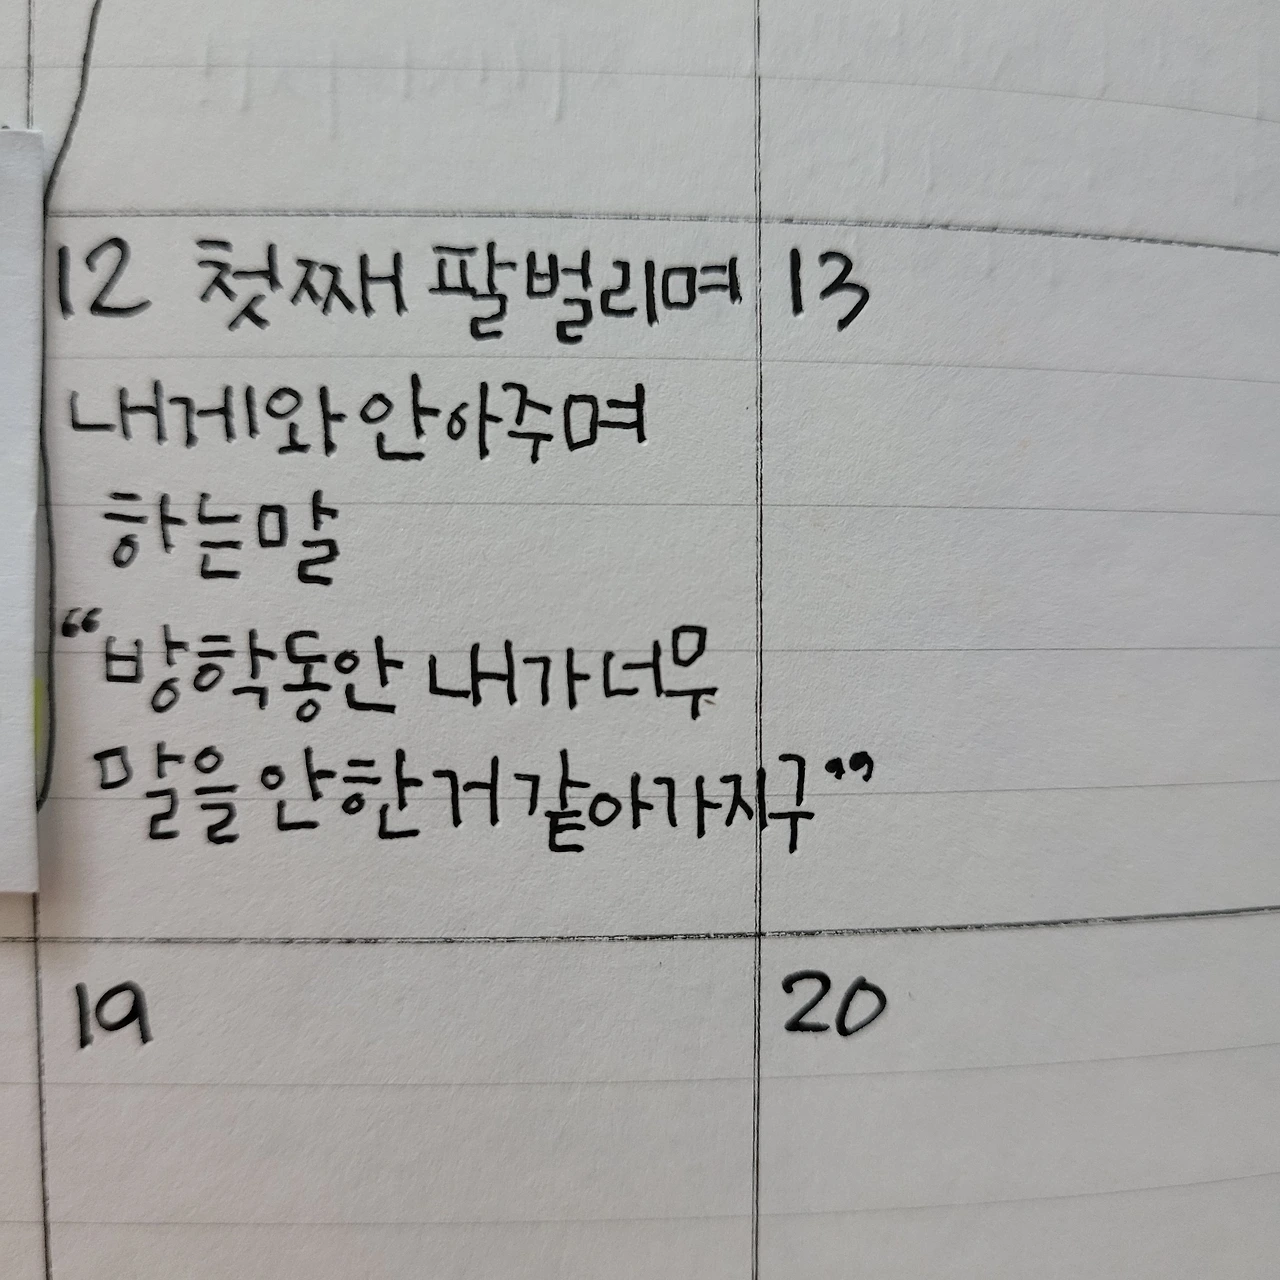 12 첫째 팔벌리며 13
내게와 안아주며
하는말
“방학동안 내가 너무
말을 안한거 같아가지구”
19 20